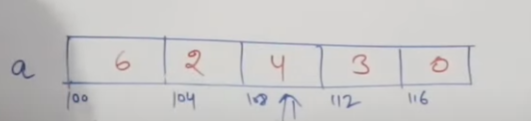 a 6 2 4 3 0
100 104 108 112 116